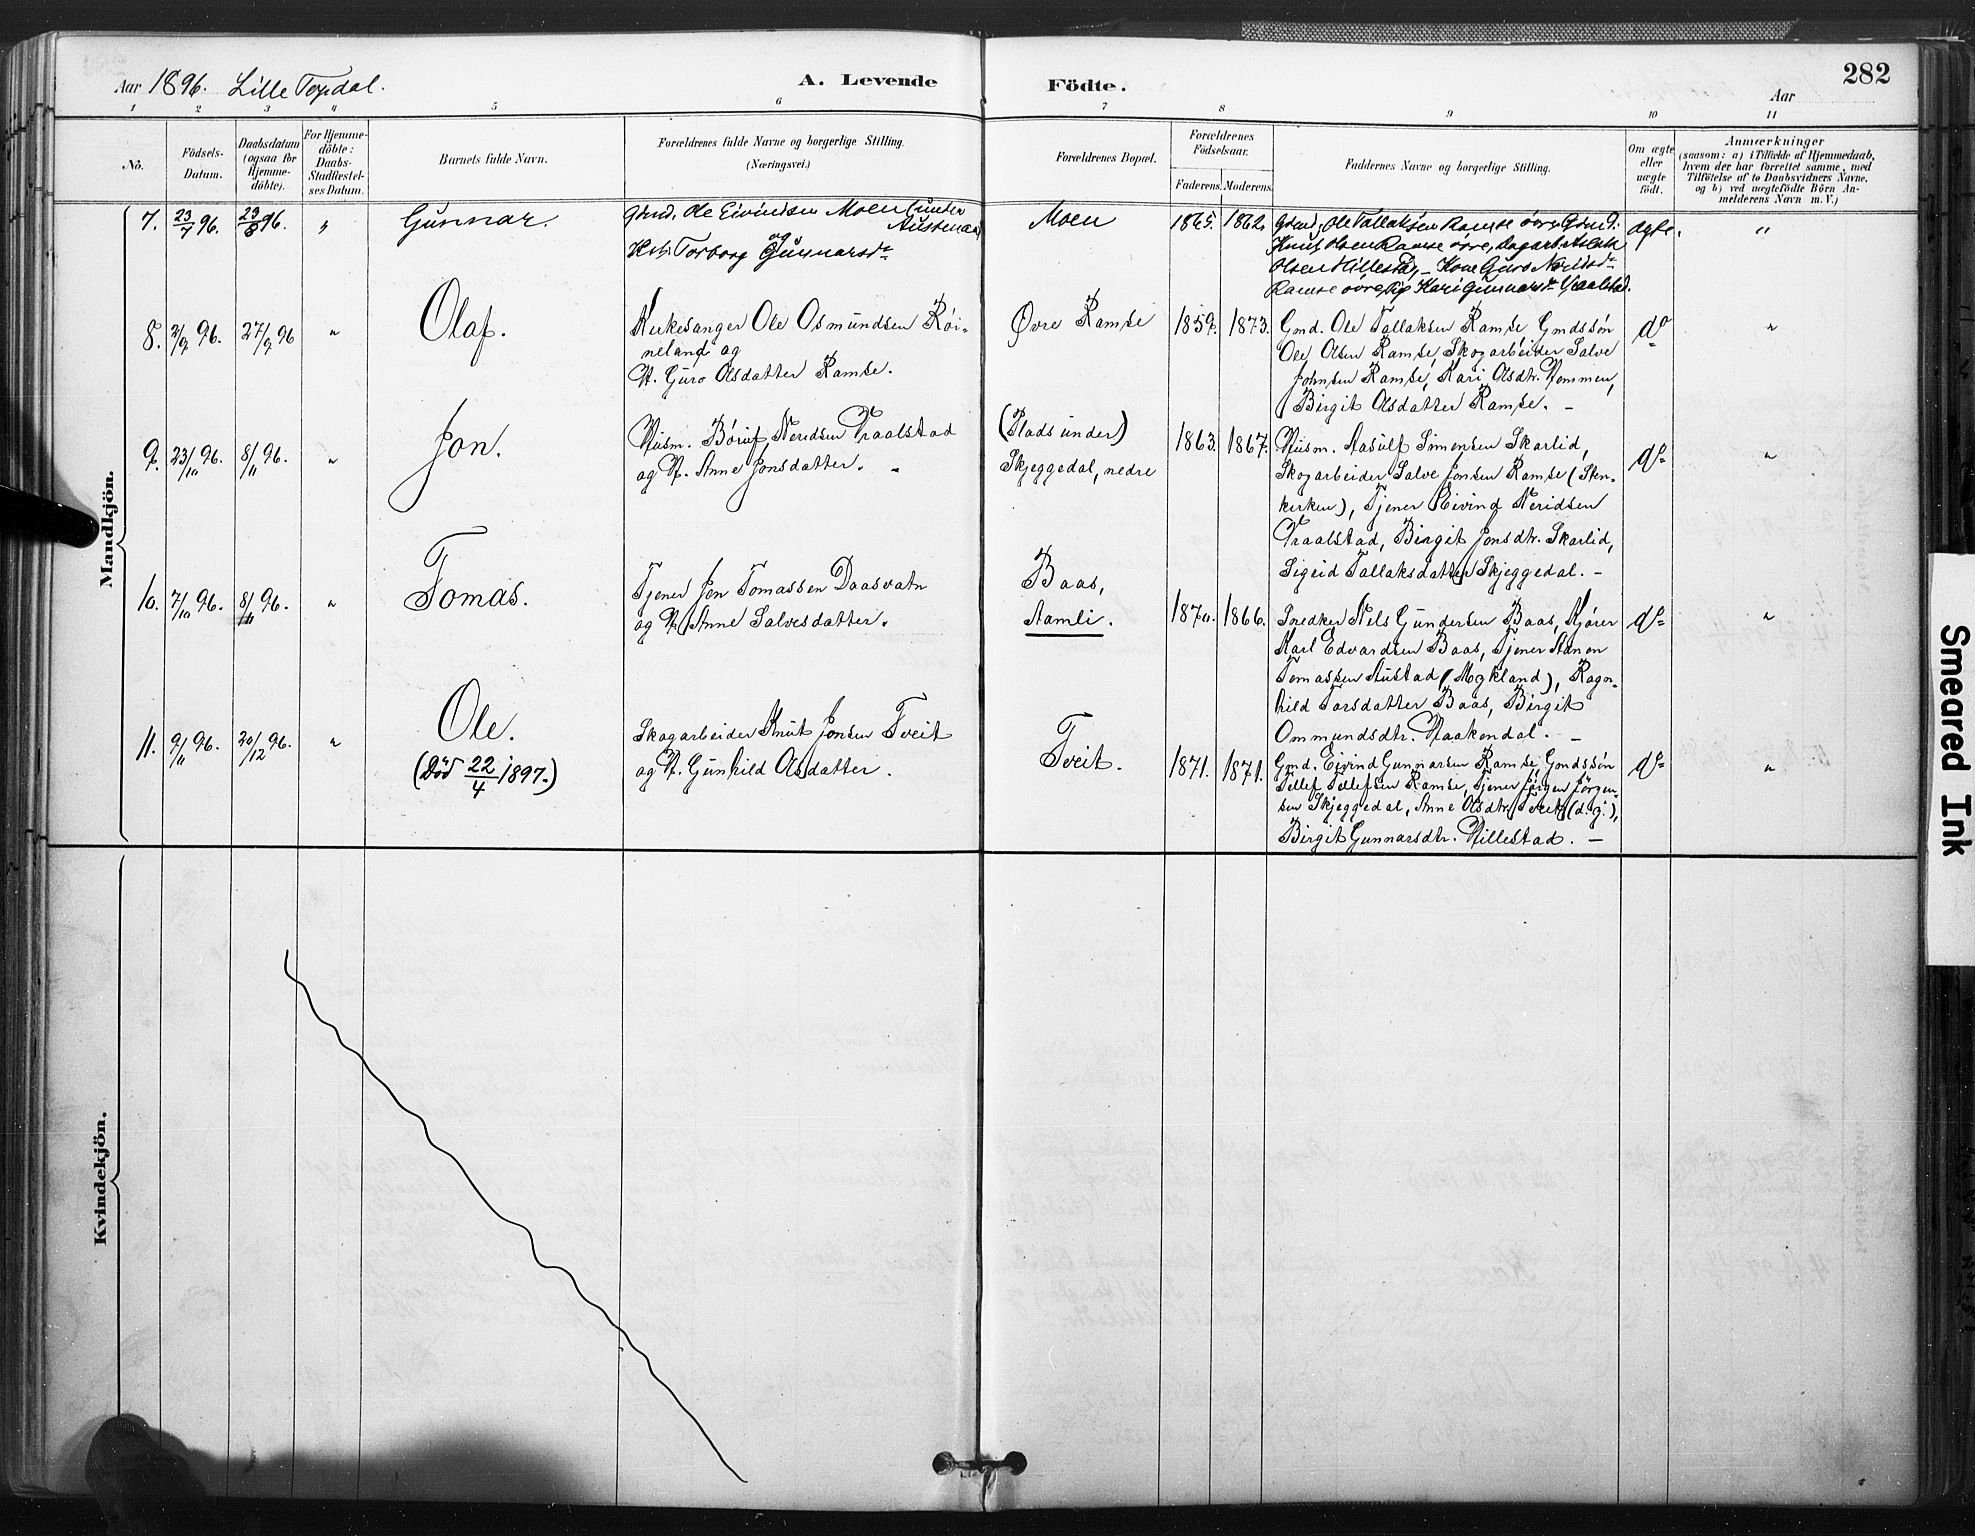 282
Aar 1896. Lille Topdal.
A. Levende Födte.
Aar
1 2 3 4 5 6 7 8 9 10 11
No.
Födsels-
Datum.
Daabsdatum
(ogsaa for
Hjemme-
döbte).
For Hjemme-
döbte:
Daabs-
Stadfæstel-
ses Datum.
Barnets fulde Navn.
Forældrenes fulde Navne og borgerlige Stilling.
(Næringsvei.)
Forældrenes Bopæl.
Forældrenes
Födselsaar.
Faderens. Moderens.
Faddernes Navne og borgerlige Stilling.
Om ægte
eller
uægte
födt.
Anmærkninger
(saasom: a) i Tilfælde af Hjemmedaab,
hvem der har forrettet samme, med
Tilföielse af to Daabsvidners Navne.
og b) ved uægtefödte Börn An-
melderens Navn m. V.)
Mandkjön.
7. 23/7 96. 23/8 96. " Gunnar.
Gbmd. Ole Eivindsen Moen (under
Austenaa)
og
Hst. Torborg Gunnarsdr
Moen
1865. 1862.
Gbmd. Ole Tallaksen Ramse övre, Gbmd.
Knut Olsen Ramse övre, Dagarb. Aslak
Olsen Hillestad, – Kone Guro Neridsdr
Ramse övre, Pig Kari Gunnarsdr Vraalstad.
ægte. "
8. 2/9 96. 27/9 96 " Olaf.
Kirkesanger Ole Osmundsen Röi-
neland og
H. Guro Olsdatter Ramse.
Øvre Ramse
1859. 1873.
Gmd. Ole Tallaksen Ramse, Gmdssön
Ole Olsen Ramse, Skogarbeider Salve
Johnsen Ramse, Kari Olsdtr. Nommen,
Birgit Olsdatter Ramse. –
do "
9. 23/10 96. 8/11 96. " Jon.
Husm. Böruf Neridsen Vraalstad
og H. Anne Jonsdatter. –
(Plads under)
Skjeggedal, nedre
1863. 1867.
Husm. Aasulf Simonsen Skarlid,
Skogarbeider Salve Jonsen Ramse (Sten-
kirken), Tjener Eivind Neridsen
Vraalstad, Birgit Jonsdtr. Skarlid,
Sigrid Tallaksdatter Skjeggedal. –
do "
10. 7/10 96. 8/11 96. " Tomas.
Tjener Jon Tomassen Daasvatn
og H. Anne Salvesdatter.
Baas,
Aamli.
1870. 1866.
Snedker Nels Gundersen Baas, Kjörer
Karl Edvardsen Baas, Tjener Aanon
Tomassen Austad (Mykland), Ragn-
hild Tarsdatter Baas, Birgit
Ommundsdtr. Haakendal. –
do "
11. 9/11 96. 20/12 96. " Ole.
(Död 22/4 1897.)
Skogarbeider Knut Jonsen Tveit
og H. Gunhild Olsdatter.
Tveit.
1871. 1871.
Gmd. Eivind Gunnarsen Ramse, Gmdssön
Tellef Tellefsen Ramse, Tjener Jörgen Jörgen-
sen Skjeggedal, Anne Olsdtr. Tveit (d. g.),
Birgit Gunnarsdtr. Hillestad. –
do "
Kvindekjön.
Smeared Ink